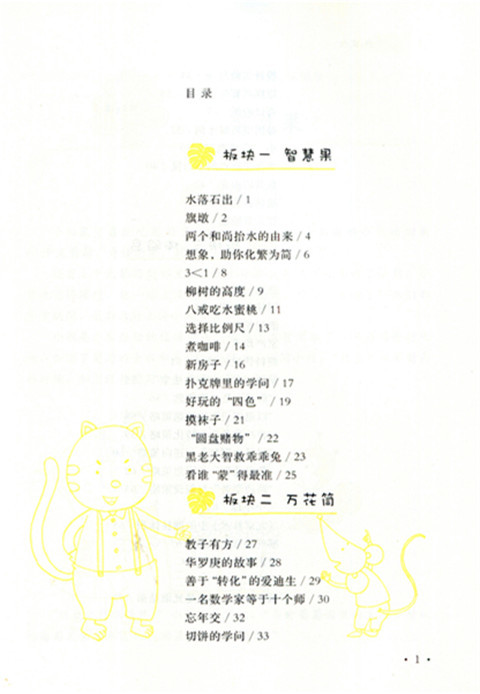 目录
板块一 智慧果
水落石出 / 1
旗墩 / 2
两个和尚抬水的由来 / 4
想象，助你化繁为简 / 6
3＜1 / 8
柳树的高度 / 9
八戒吃水蜜桃 / 11
选择比例尺 / 13
煮咖啡 / 14
新房子 / 16
扑克牌里的学问 / 17
好玩的“四色” / 19
摸袜子 / 21
“圆盘赌物” / 22
黑老大智救乖乖兔 / 23
看谁“蒙”得最准 / 25
板块二 万花筒
教子有方 / 27
华罗庚的故事 / 28
善于“转化”的爱迪生 / 29
一名数学家等于十个师 / 30
忘年交 / 32
切饼的学问 / 33
· 1 ·